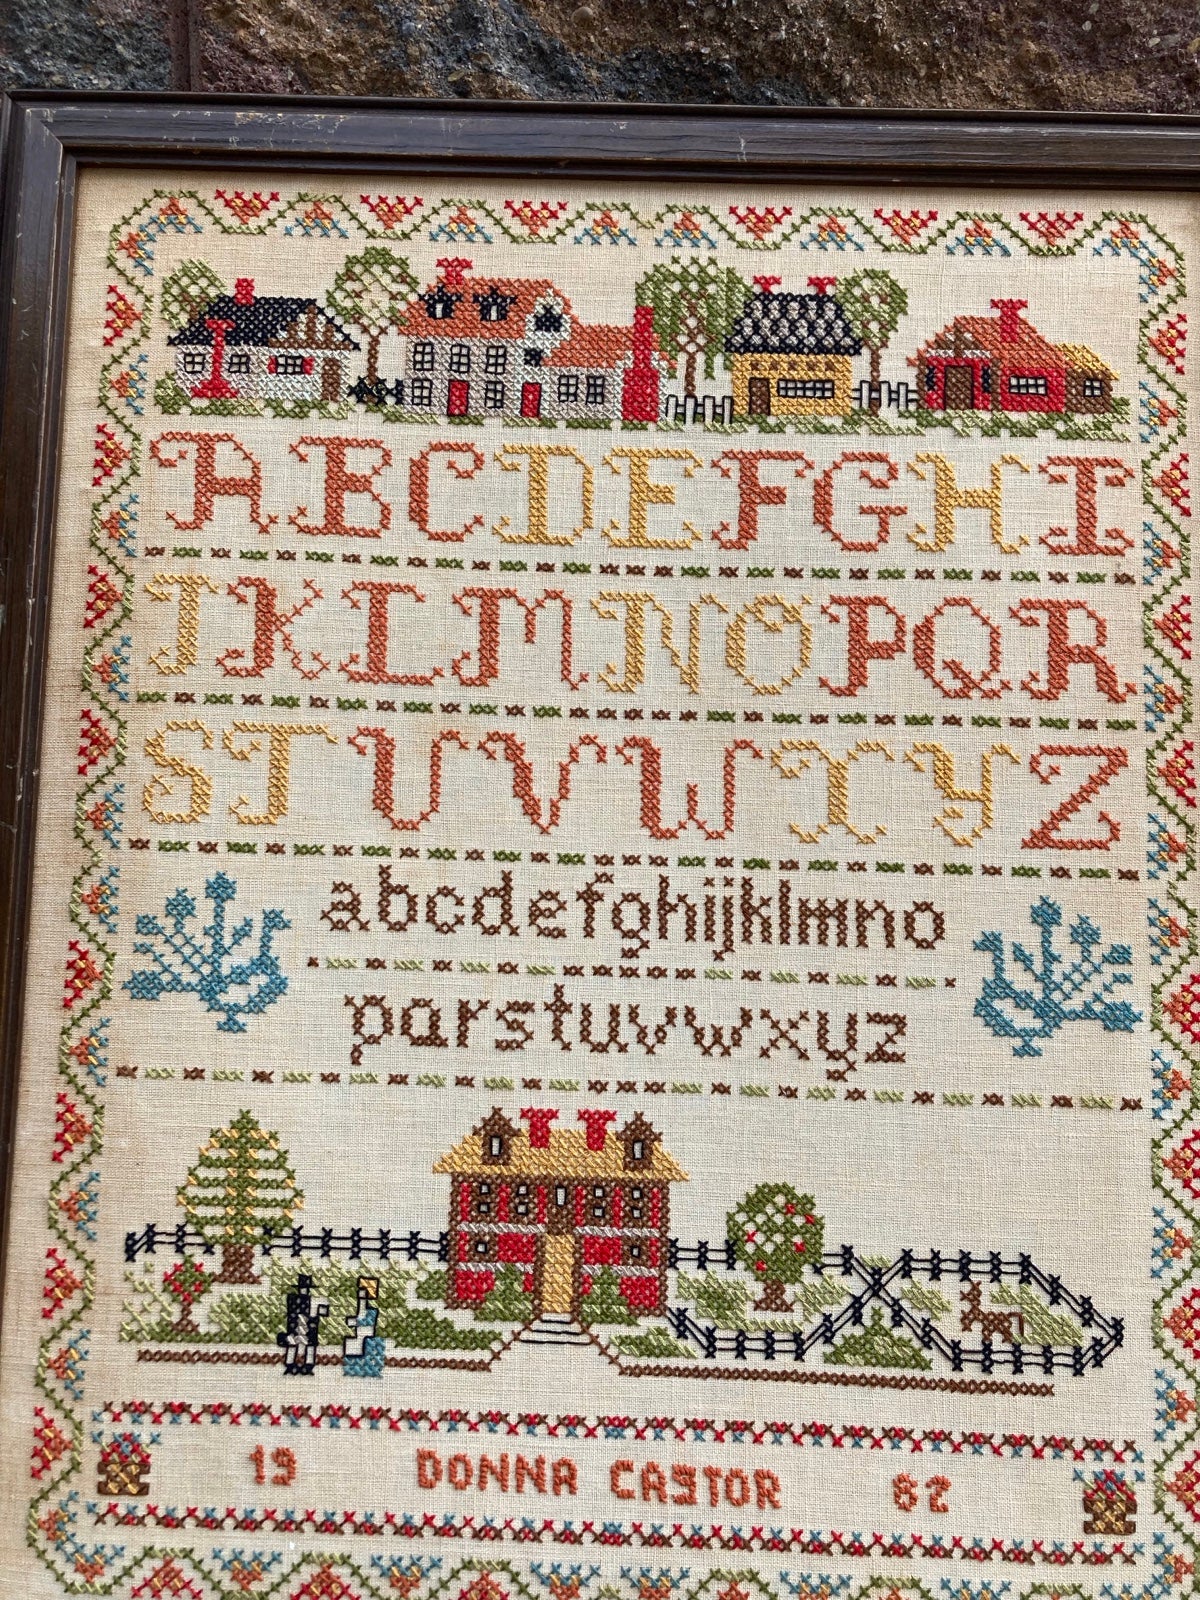 ABCDEFGHI
JKLMNOPQR
STUVWXYZ
abcdefghijklmno
parstuvwxyz
19 DONNA CASTOR 82